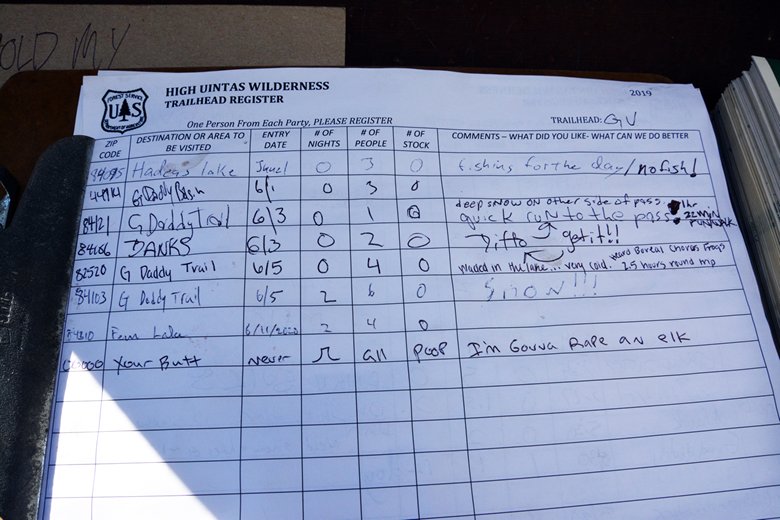 OLD MY
HIGH UINTAS WILDERNESS
TRAILHEAD REGISTER
2019
FOREST SERVICE
U S
DEPARTMENT OF AGRICULTURE
One Person From Each Party, PLEASE REGISTER
TRAILHEAD: GV
ZIP CODE DESTINATION OR AREA TO BE VISITED ENTRY DATE # OF NIGHTS # OF PEOPLE # OF STOCK COMMENTS – WHAT DID YOU LIKE- WHAT CAN WE DO BETTER
Hades lake June1 0 3 0 fishing for the day/no fish!
G Daddy Basin 6/1 0 3 0
deep snow on other side of pass
84121 G Daddy Trail 6/3 0 1 0 quick run to the pass 1hr 22min
84106 DANKS 6/3 0 2 0 Ditto get it!!
Heard Boreal Chorus Frogs
82520 G Daddy Trail 6/5 0 4 0 Waded in the lake... very cold. 2.5 hours round trip
84103 G Daddy Trail 6/5 2 6 0 SNOW!!!
Fern Lake 6/11/2020 2 4 0
00000 Your Butt never all poop I'm Gonna Rape an elk